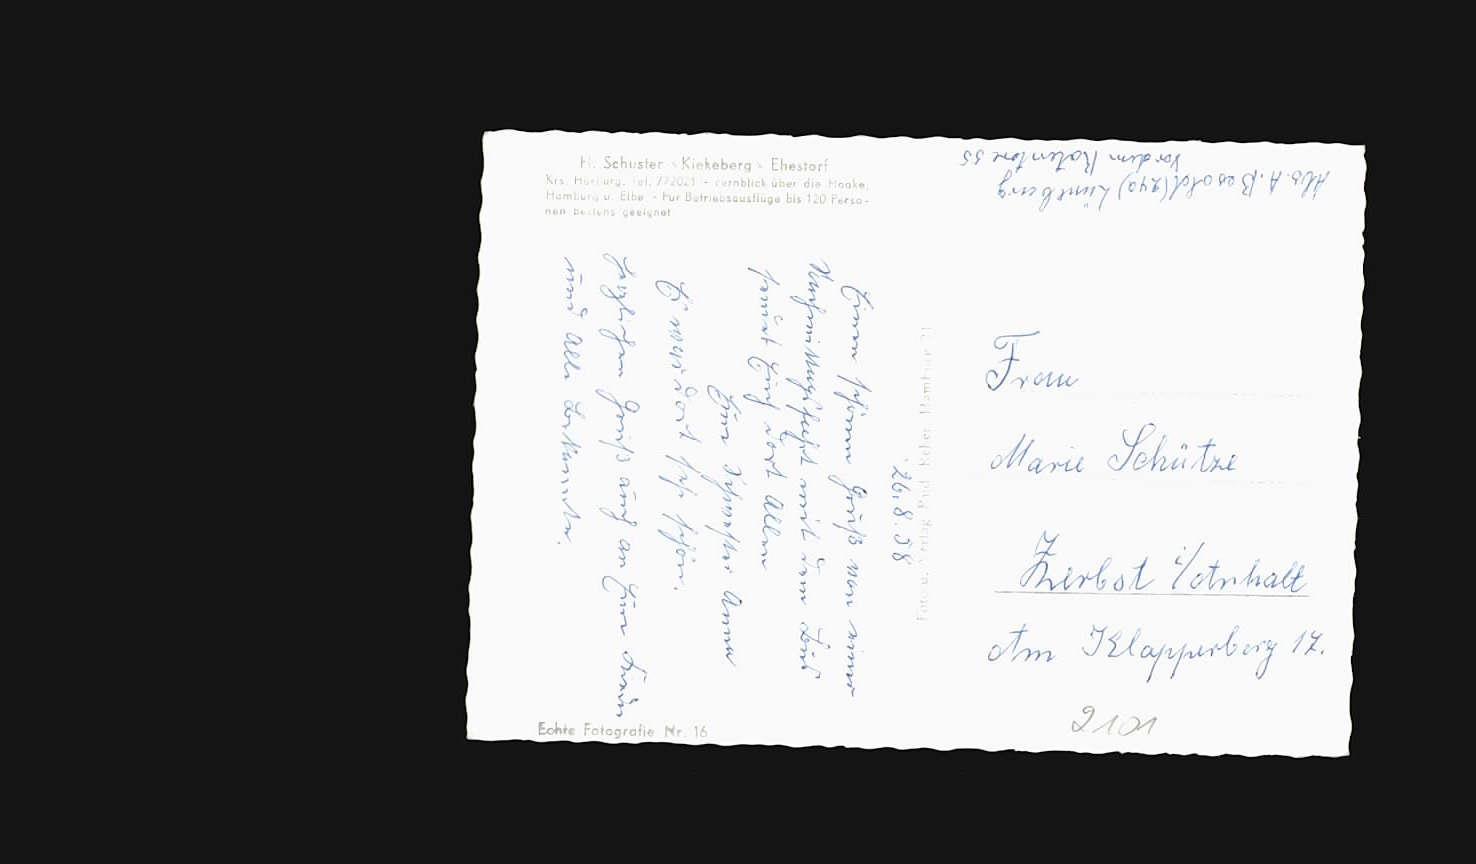 H. Schuster - Kiekeberg - Ehestorf
Krs. Harburg. Tel. 772021 - Fernblick über die Haake,
Hamburg u. Elbe - Für Betriebsausflüge bis 120 Perso-
nen bestens geeignet
Abs. A. Besold (24a) Lüneburg
Vor dem Rotentore 55
26.8.58
Einen schönen Gruß von einer
mit dem Bus
sendet Euch dort allen
Eure Schwester Anna
Es war dort sehr schön.
Herzlichen Gruß auch an
und alle Bekannte.
Foto u. Verlag Paul Hamburg 21
Frau
Marie Schütze
Zerbst i/Anhalt
Am Klapperberg 17.
2101
Echte Fotografie Nr. 16